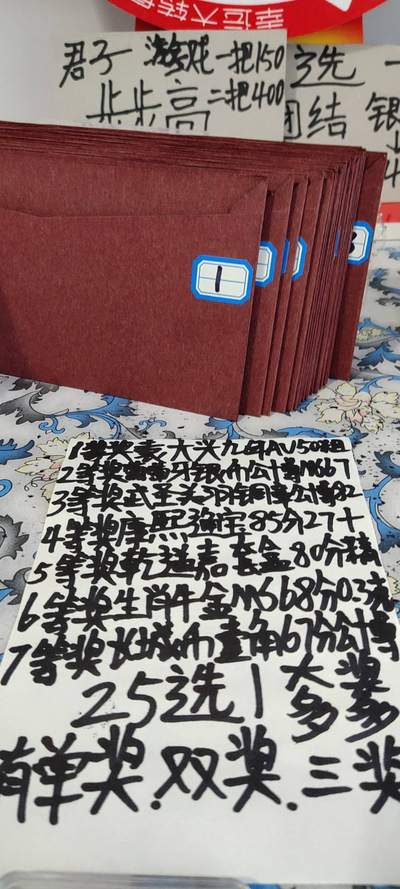 幸运大转
君子一 游戏一把150
步步高二把400
选一
团结 银
1
1等奖袁大头九年AU50
2等奖 牙银币公博MS67
3等奖 公博82
4等奖康熙 宝85分27十
5等奖乾道嘉套盒80分
6等奖生肖牛金MS68分0.3克
7等奖长城币壹角67分公博
25选1 大奖多多
有单奖.双奖.三奖